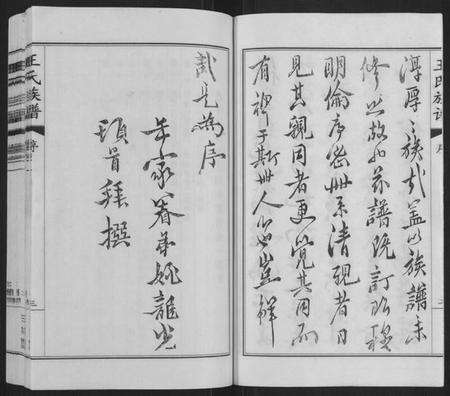 王氏族譜
序
淳厚之族哉蓋以族譜未
修之故也茲譜既訂昭穆
明倫序密世系清覌者日
見其親同者更覺其同而
有裨于斯世人心豈鮮
哉是為序
年家眷弟姚龍光
頓首拜撰
王氏族譜
序